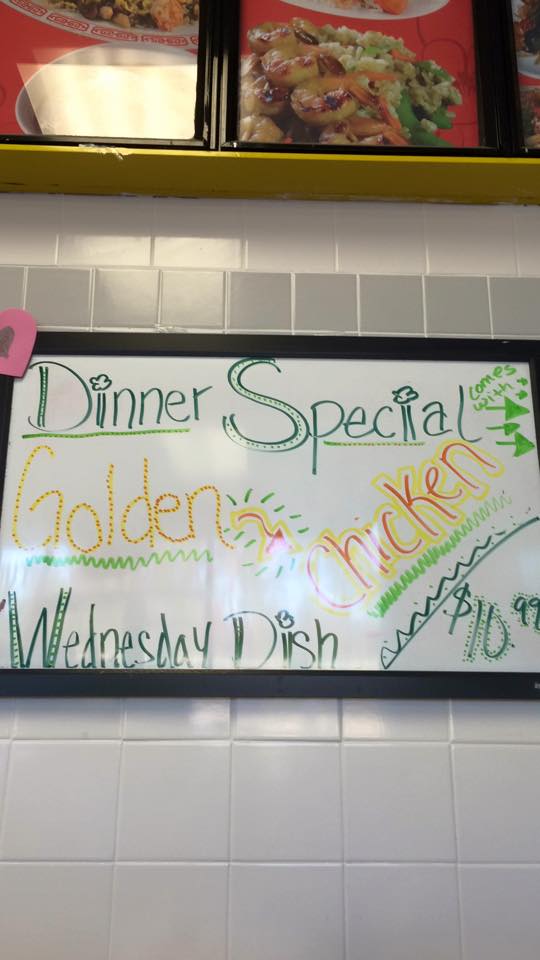 Dinner Special
comes
with
Golden Chicken
Wednesday Dish $10.99